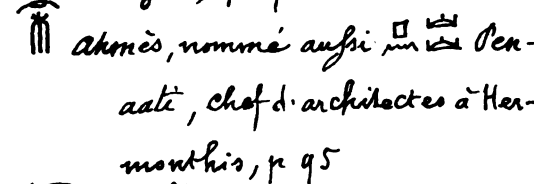 Ahmès, nommé aussi Pen-
aati, chef d'architectes à Her-
monthis, p 95